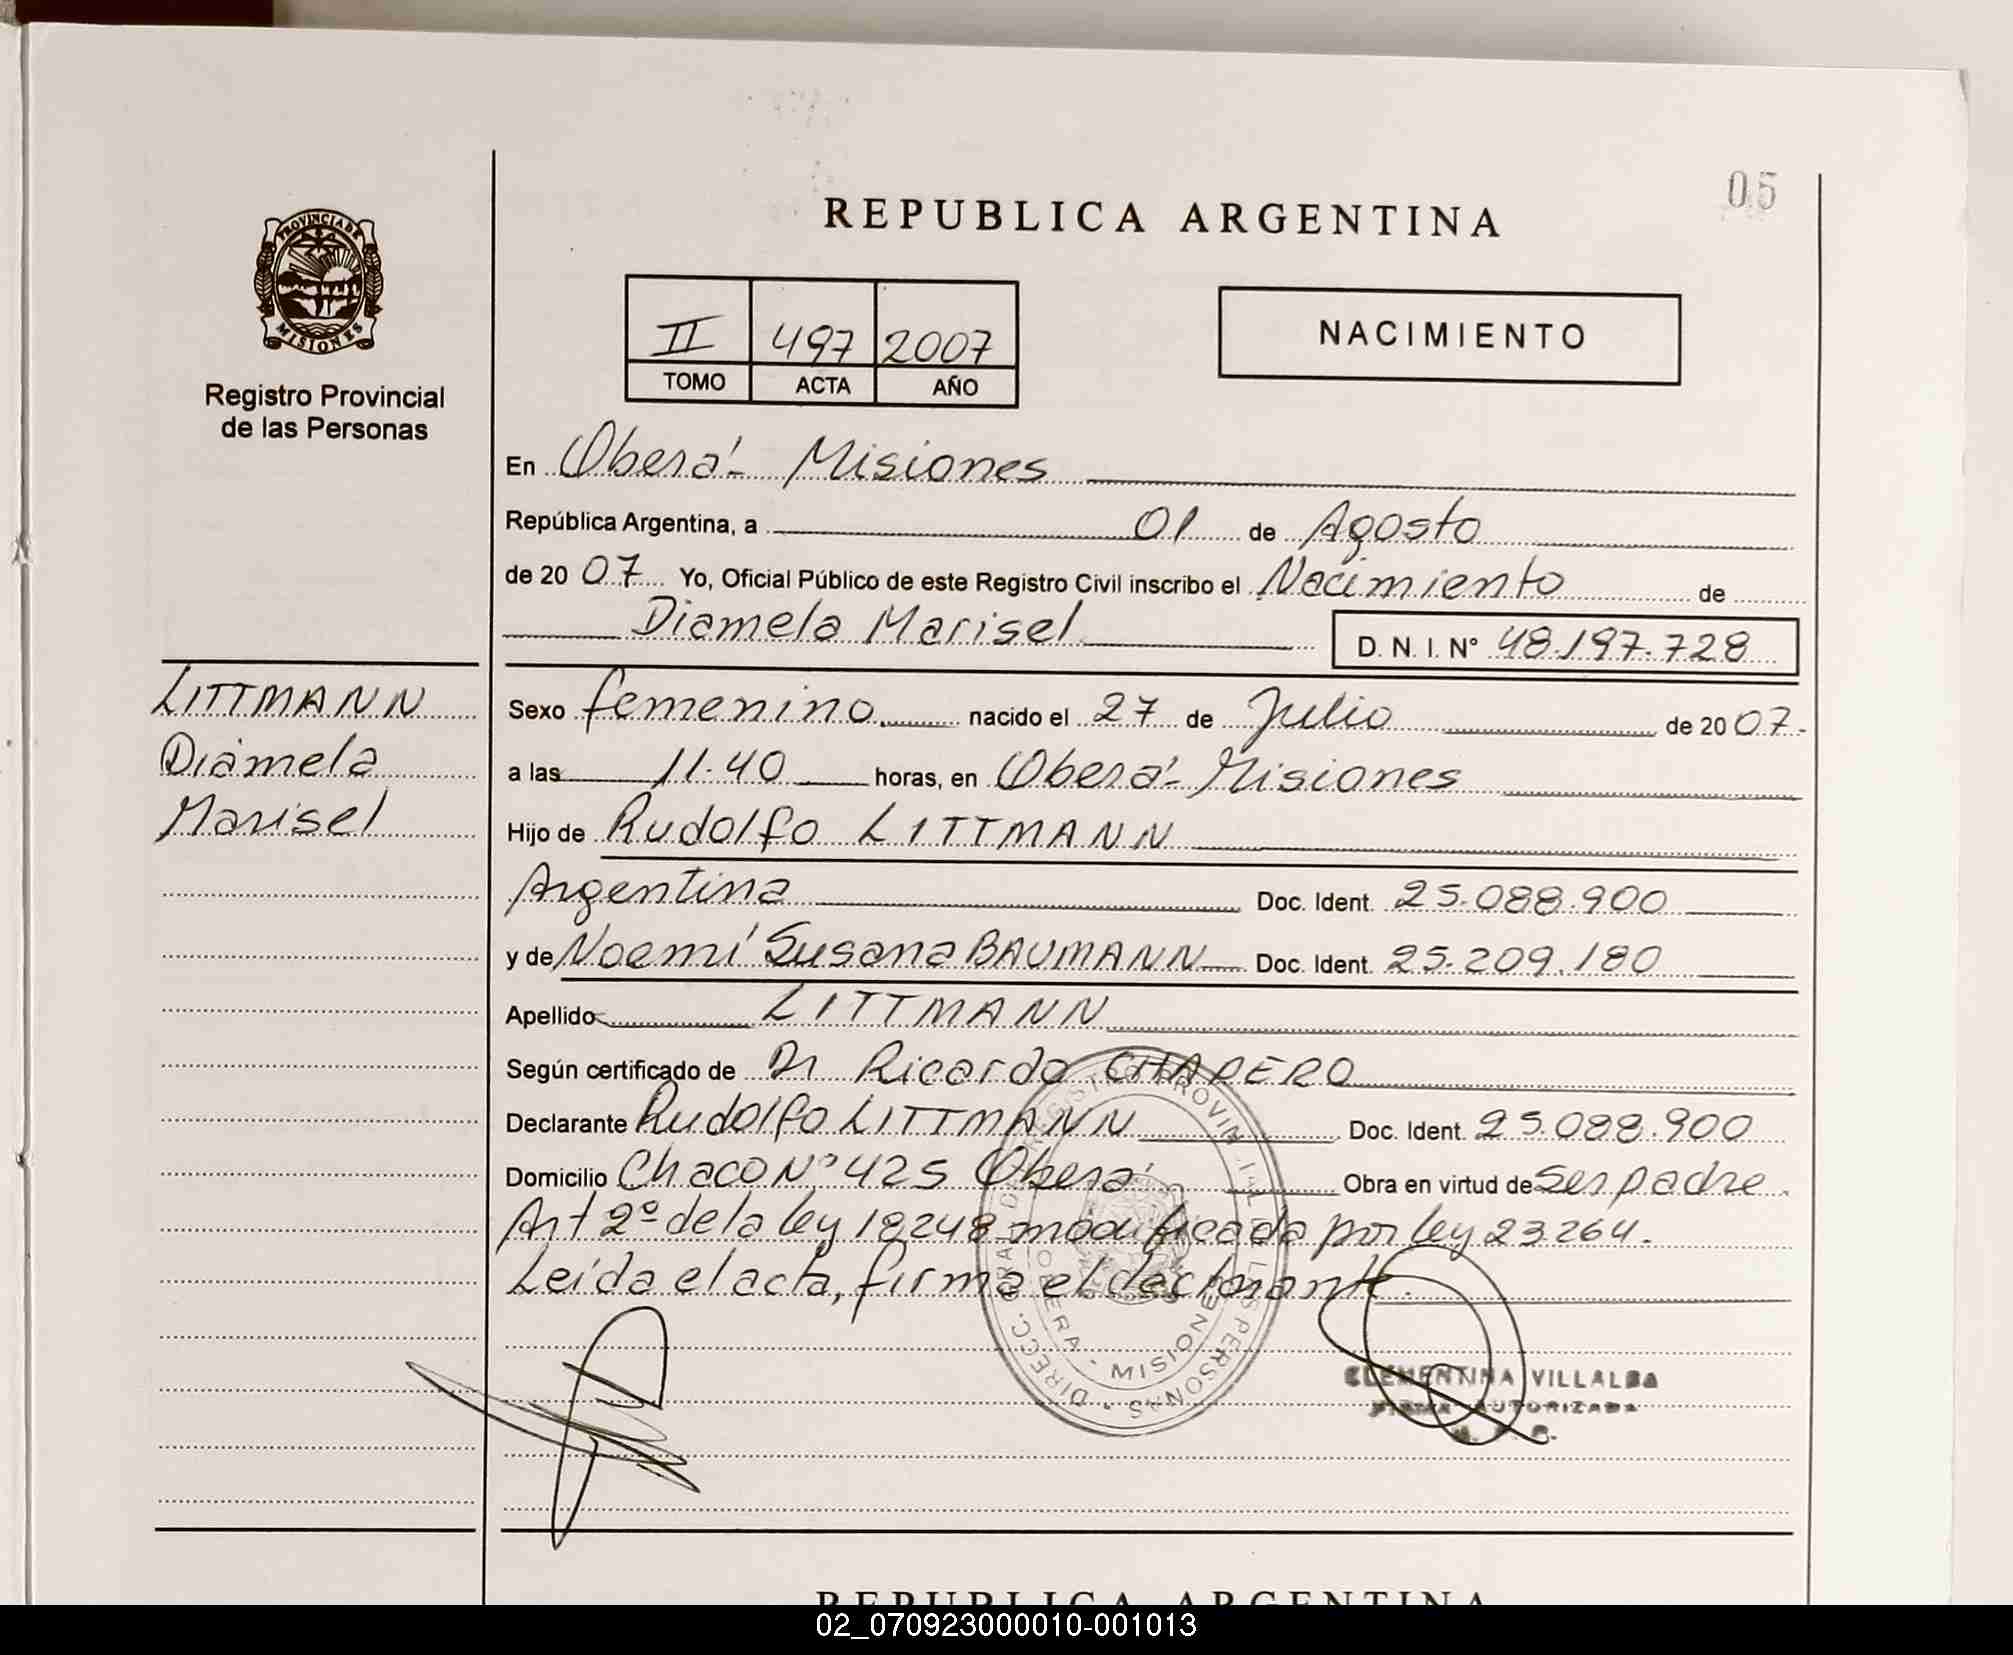 05
REPUBLICA ARGENTINA
PROVINCIA DE
MISIONES
Registro Provincial
de las Personas
II 497 2007
TOMO ACTA AÑO
NACIMIENTO
En Oberá - Misiones
República Argentina, a 01 de Agosto
de 20 07 Yo, Oficial Público de este Registro Civil inscribo el Nacimiento de
Diamela Marisel D. N. I. N° 48.197.728
LITTMANN
Diamela
Marisel
Sexo femenino nacido el 27 de Julio de 20 07.
a las 11.40 horas, en Oberá - Misiones
Hijo de Rudolfo LITTMANN
Argentina Doc. Ident. 25.088.900
y de Noemí Susana BAUMANN Doc. Ident. 25.209.180
Apellido LITTMANN
Según certificado de Dr Ricardo
Declarante Rudolfo LITTMANN Doc. Ident. 25.088.900
Domicilio Chaco N° 425 Oberá Obra en virtud de ser padre.
Art 2º de la ley 18248 modificada por ley 23.264.
Leída el acta, firma el declarante.
OBERA - MISIONES
CLEMENTINA VILLALBA
FIRMA AUTORIZADA
REPUBLICA ARGENTINA
02_070923000010-001013